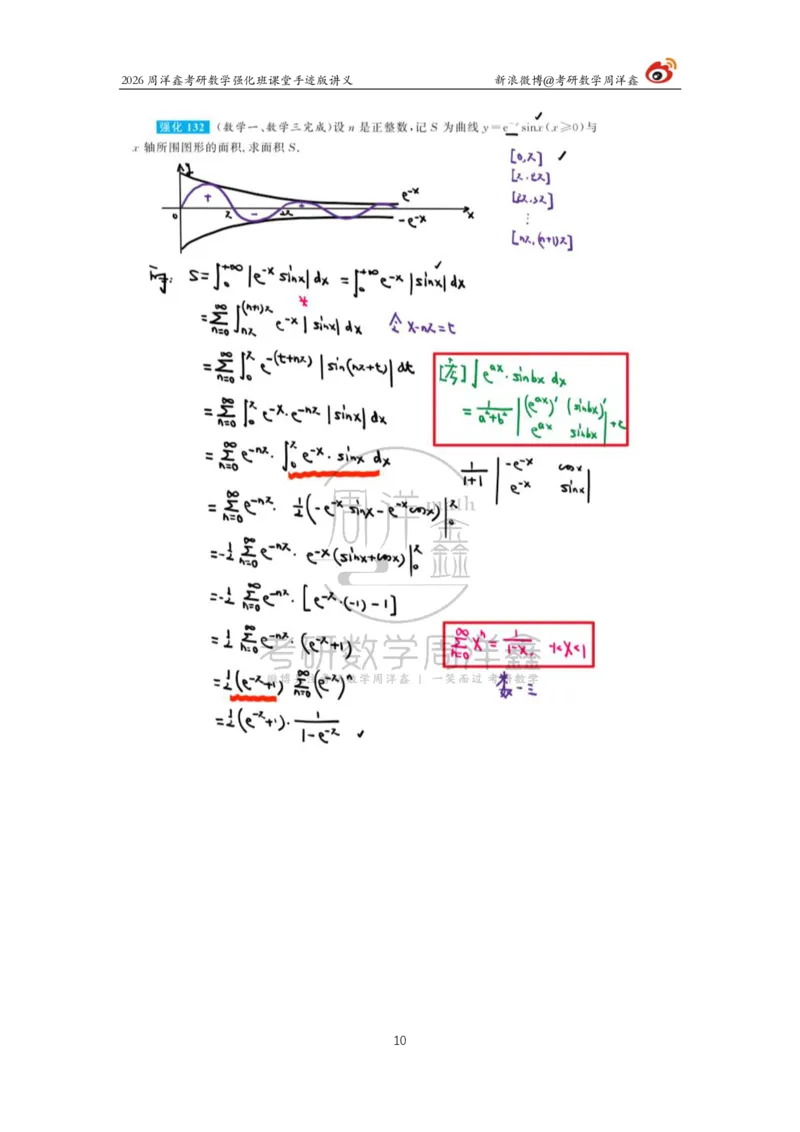 2026 周洋鑫考研数学强化班课堂手迹版讲义 新浪微博@考研数学周洋鑫
强化 132 (数学一、数学三完成)设 n 是正整数,记 S 为曲线 y=e⁻ˣsinx(x⩾0)与
x 轴所围图形的面积,求面积 S.
[0,π] ✓
[π,2π]
[2π,3π]
⋮
[nπ,(n+1)π]
y
+ − +
0 π 2π x
e^{-x}
-e^{-x}
S=∫_0^{+∞}|e^{-x} sinx|dx =∫_0^{+∞} e^{-x}|sinx|dx
=Σ_{n=0}^{∞} ∫_{nπ}^{(n+1)π} e^{-x}|sinx|dx 令 x-nπ=t
=Σ_{n=0}^{∞} ∫_0^π e^{-(t+nπ)} |sin(nπ+t)|dt
=Σ_{n=0}^{∞} ∫_0^π e^{-x}·e^{-nπ} |sinx|dx
=Σ_{n=0}^{∞} e^{-nπ}· ∫_0^π e^{-x}·sinx dx
∫e^{ax}·sinbx dx
= 1/(a²+b²) |(e^{ax})' (sinbx)'|
|e^{ax} sinbx| +c
1/(1+1) |-e^{-x} cosx|
|e^{-x} sinx|
=Σ_{n=0}^{∞} e^{-nπ}· ½(-e^{-x}sinx-e^{-x}cosx)|_0^π
=-½Σ_{n=0}^{∞} e^{-nπ}· e^{-x}(sinx+cosx)|_0^π
=-½Σ_{n=0}^{∞} e^{-nπ}·[e^{-π}·(-1)-1]
=½Σ_{n=0}^{∞} e^{-nπ}·(e^{-π}+1)
Σ_{n=0}^{∞} x^n = 1/(1-x), -1<x<1
数一三
=½(e^{-π}+1) Σ_{n=0}^{∞}(e^{-π})^n
=½(e^{-π}+1)· 1/(1-e^{-π}) ✓
周洋鑫 math
考研数学周洋鑫
数学周洋鑫 | 一笑而过 考研数学
10